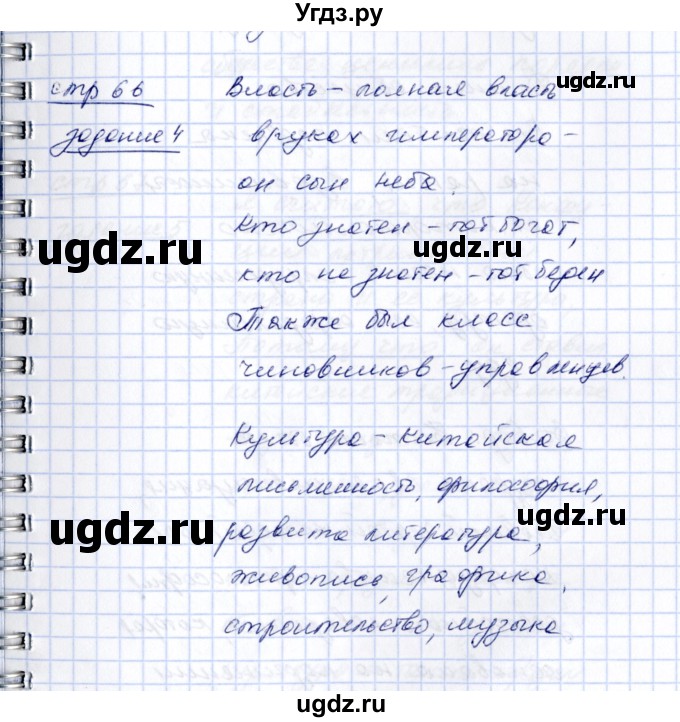 Угдз.ру
стр 66 Власть – полная власть
задание 4 в руках императора –
он сын неба.
Кто знатен – тот богат,
кто не знатен – тот беден
Также был класс
чиновников – управленцев.
Культура – китайская
письменность, философия,
развита литература,
живопись, графика,
строительство, музыка.
ugdz.ru
ugdz.ru
ugdz.ru
ugdz.ru
ugdz.ru
ugdz.ru
ugdz.ru
ugdz.ru